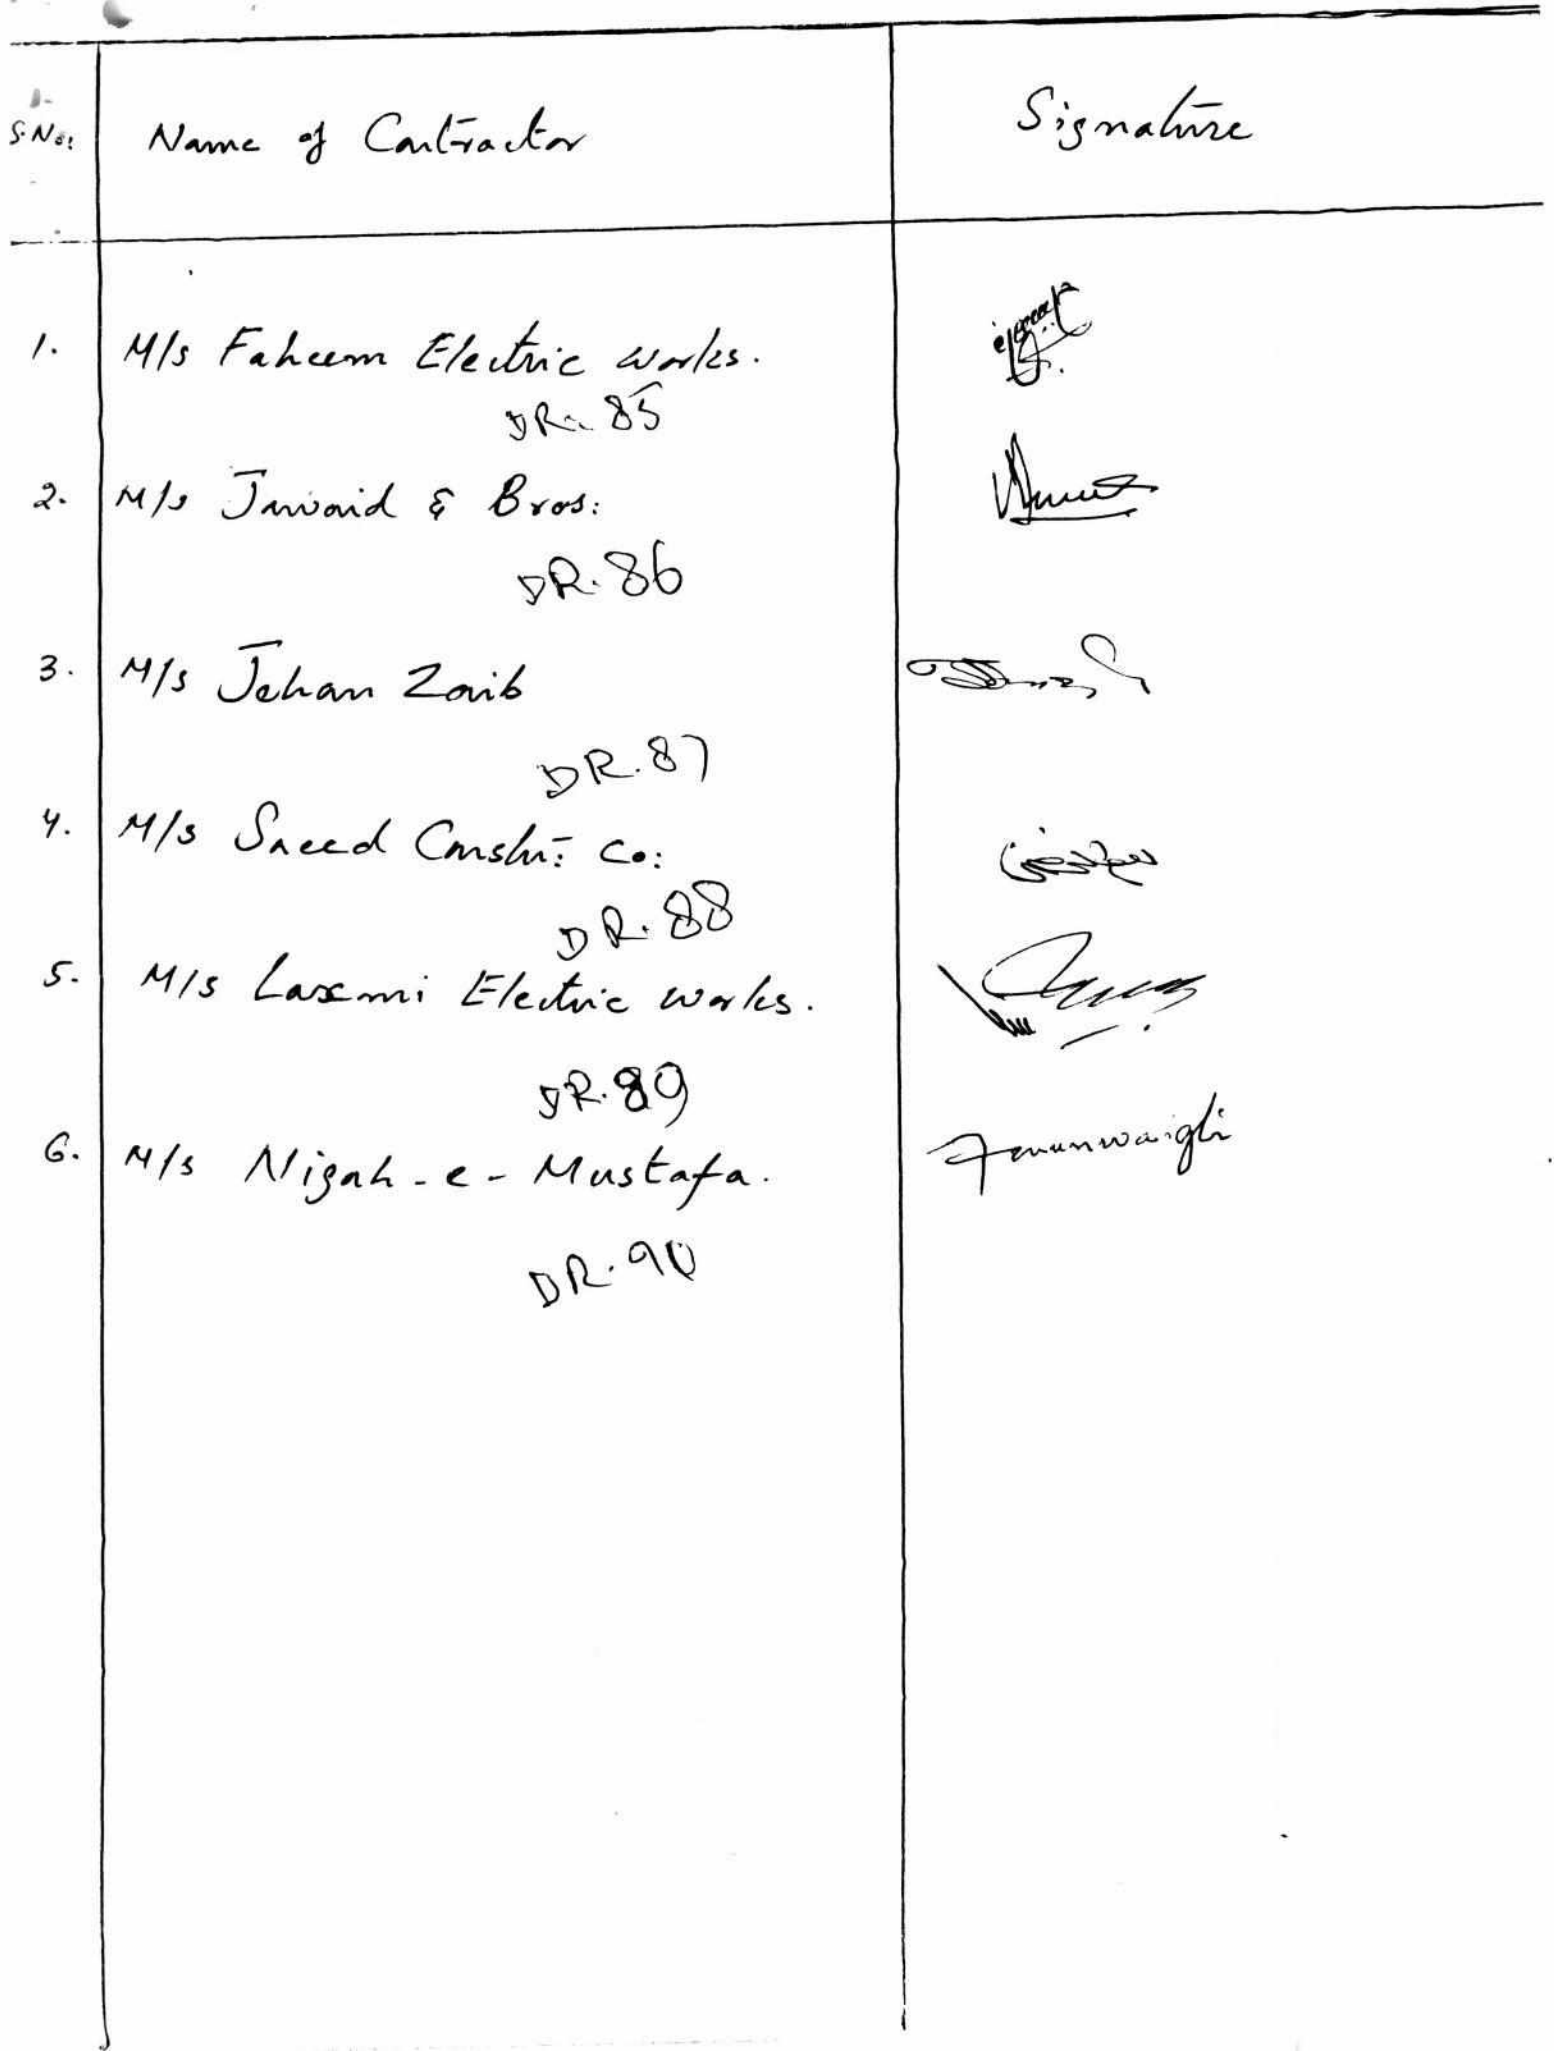 S.No: Name of Contractor Signature
1. M/s Faheem Electric works.
DR. 85
2. M/s Javaid & Bros:
DR. 86
3. M/s Jehan Zaib
DR. 87
4. M/s Saeed Const: Co:
DR. 88
5. M/s Laxmi Electric works.
DR. 89
6. M/s Nigah-e-Mustafa.
DR. 90